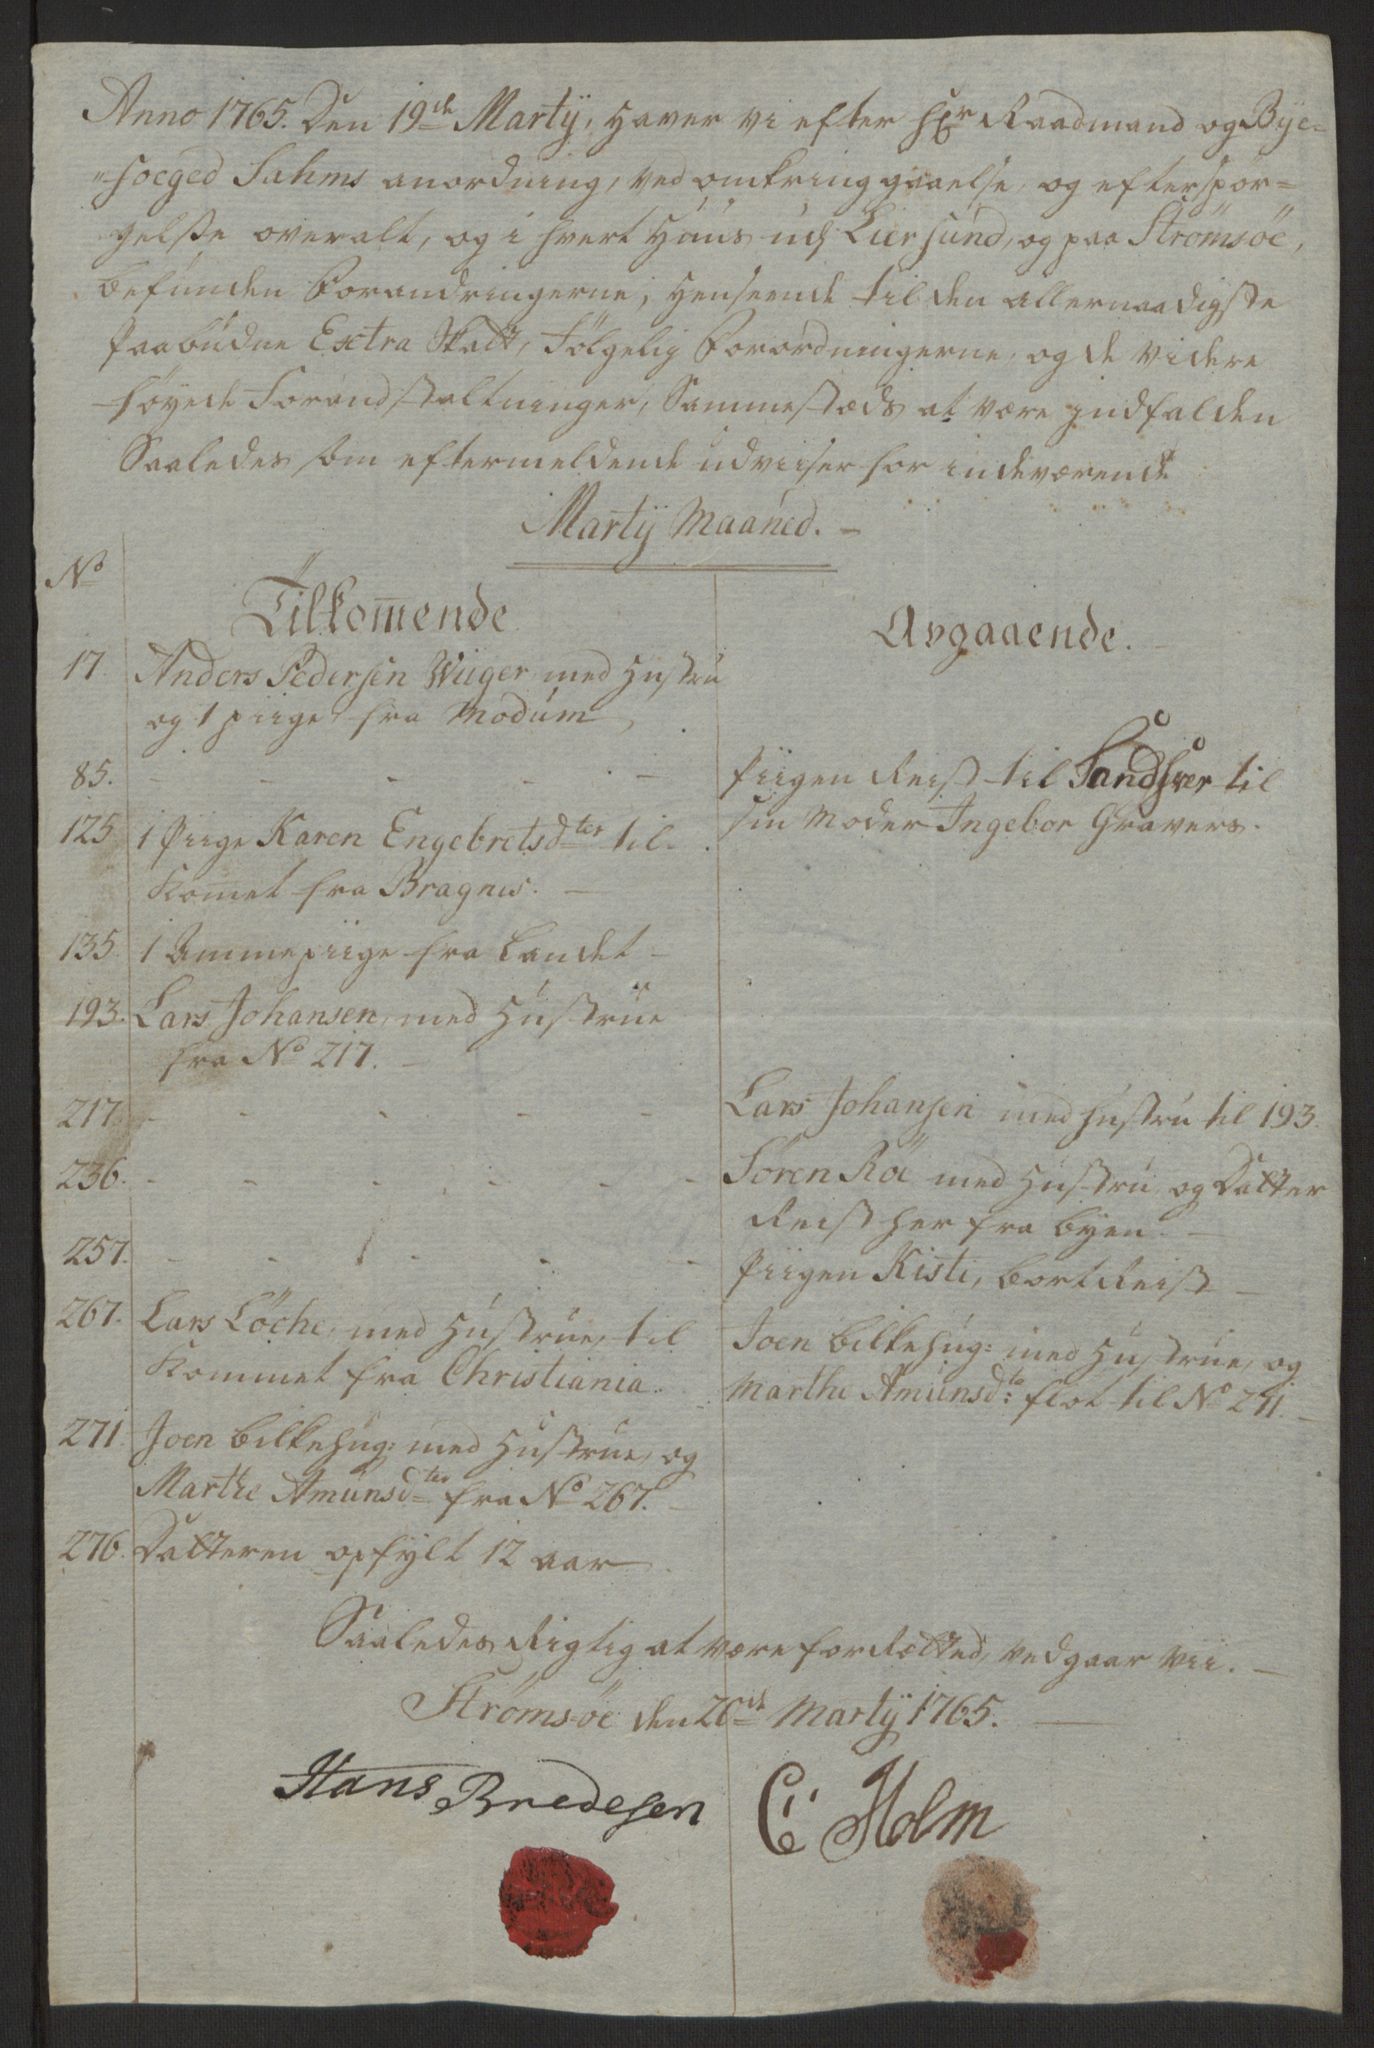 Anno 1765. Den 19de Martÿ, Haver vi efter Hr Raadmand og Bye=
"foeged Sahms anordning, ved omkringgaaelse, og efterspör=
gelße overalt, og i hvert Huus udj Liersund, og paa Strömsöe,
befunden Forandringerne, henseende til den allernaadigste
paabudne Extra Skatt, Fölgelig Forordningerne, og de videre
föyede Foranstaltninger, Sammestæds at være indfalden
Saaledes som eftermeldende udviiser for indeværende
Martÿ Maaned. -
No
Tilkomende
Avgaaende.
17. Anders Pedersen Wiiger med Hustru
og 1 piige fra Modum,
85. - - - - - Piigen Reist til Sandsver til
sin Moder Ingebor Gravers.
125 1 Piige Karen Engebretsdter til
Komet fra Bragnes. -
135. 1 Ammepiige fra Landet -
193. Lars Johansen, med Hustrue
fra No 217. -
217. - - - - - Lars Johansen med Hustru til 193.
236. - - - - - - Sören Röe med Hustru og Datter
Reist her fra byen. -
257. - - - - - Piigen Kisti, bort Reist -
267. Lars Löche, med Hustrue, til
Kommet fra Christiania.
Joen bilkehug: med Hustrue, og
Marthe Amunsd:ter fløt til No 271. -
271. Joen bilkehug: med Hustrue, og
Marthe Amunsdter fra No 267. -
276. Datteren opfylt 12 aar
Saaledes Rigtig at være forRetted, vedgaar vii. -
Strömsöe den 20de Martÿ 1765.
Hans Bredesen C Holm